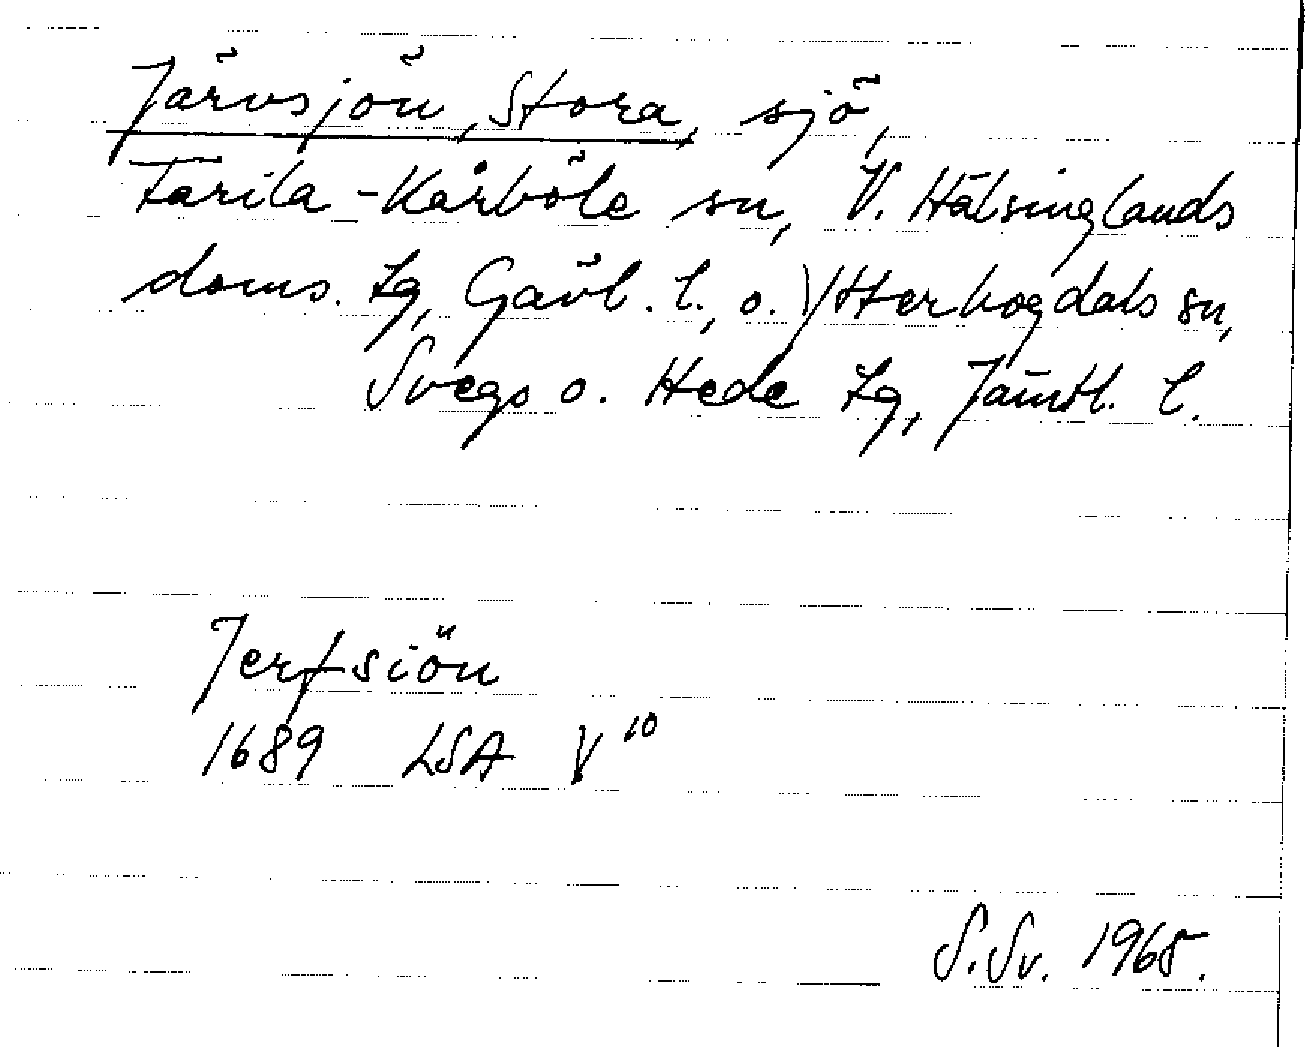 Järvsjön, Stora, sjö,
Färila-Kårböle sn, V. Hälsinglands
doms. tg, Gävl. l., o. Ytterhogdals sn,
Svegs o. Hede tg, Jämtl. l.
Jerfsiön
1689 LSA V 10
S.Sv. 1965.